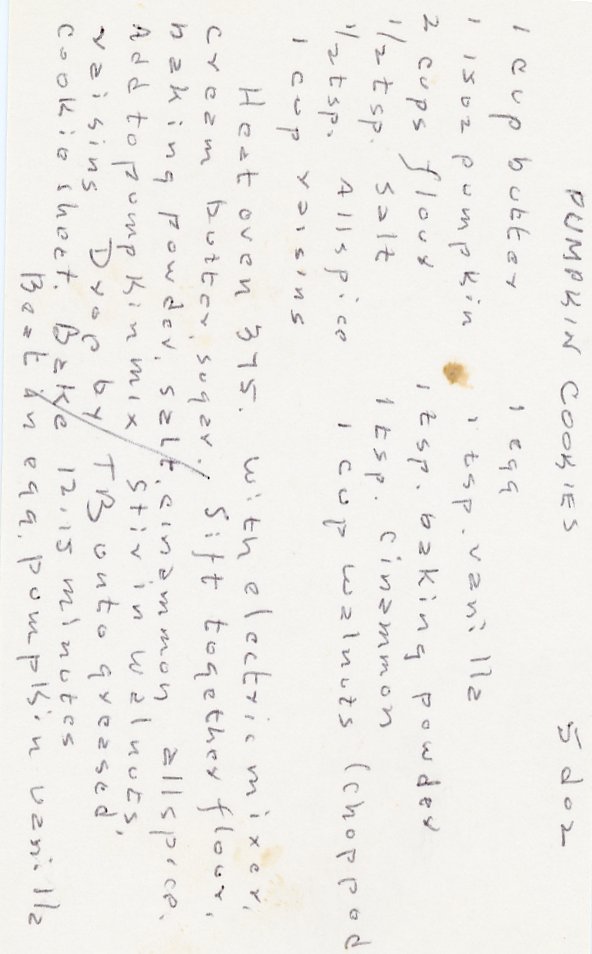 PUMPKIN COOKIES 5 doz
1 cup butter 1 egg
1 15oz pumpkin 1 tsp. vanilla
2 cups flour 1 tsp. baking powder
1/2 tsp. salt 1 tsp. cinammon
1/2 tsp. Allspice 1 cup walnuts (chopped
1 cup raisins
Heat oven 375. with electric mixer,
cream butter, sugar. Sift together flour,
baking powder, salt, cinammon allspice.
Add to pumpkin mix Stir in walnuts,
raisins Drop by TB onto greased
cookie sheet. Bake 12-15 minutes
Beat in egg, pumpkin vanilla